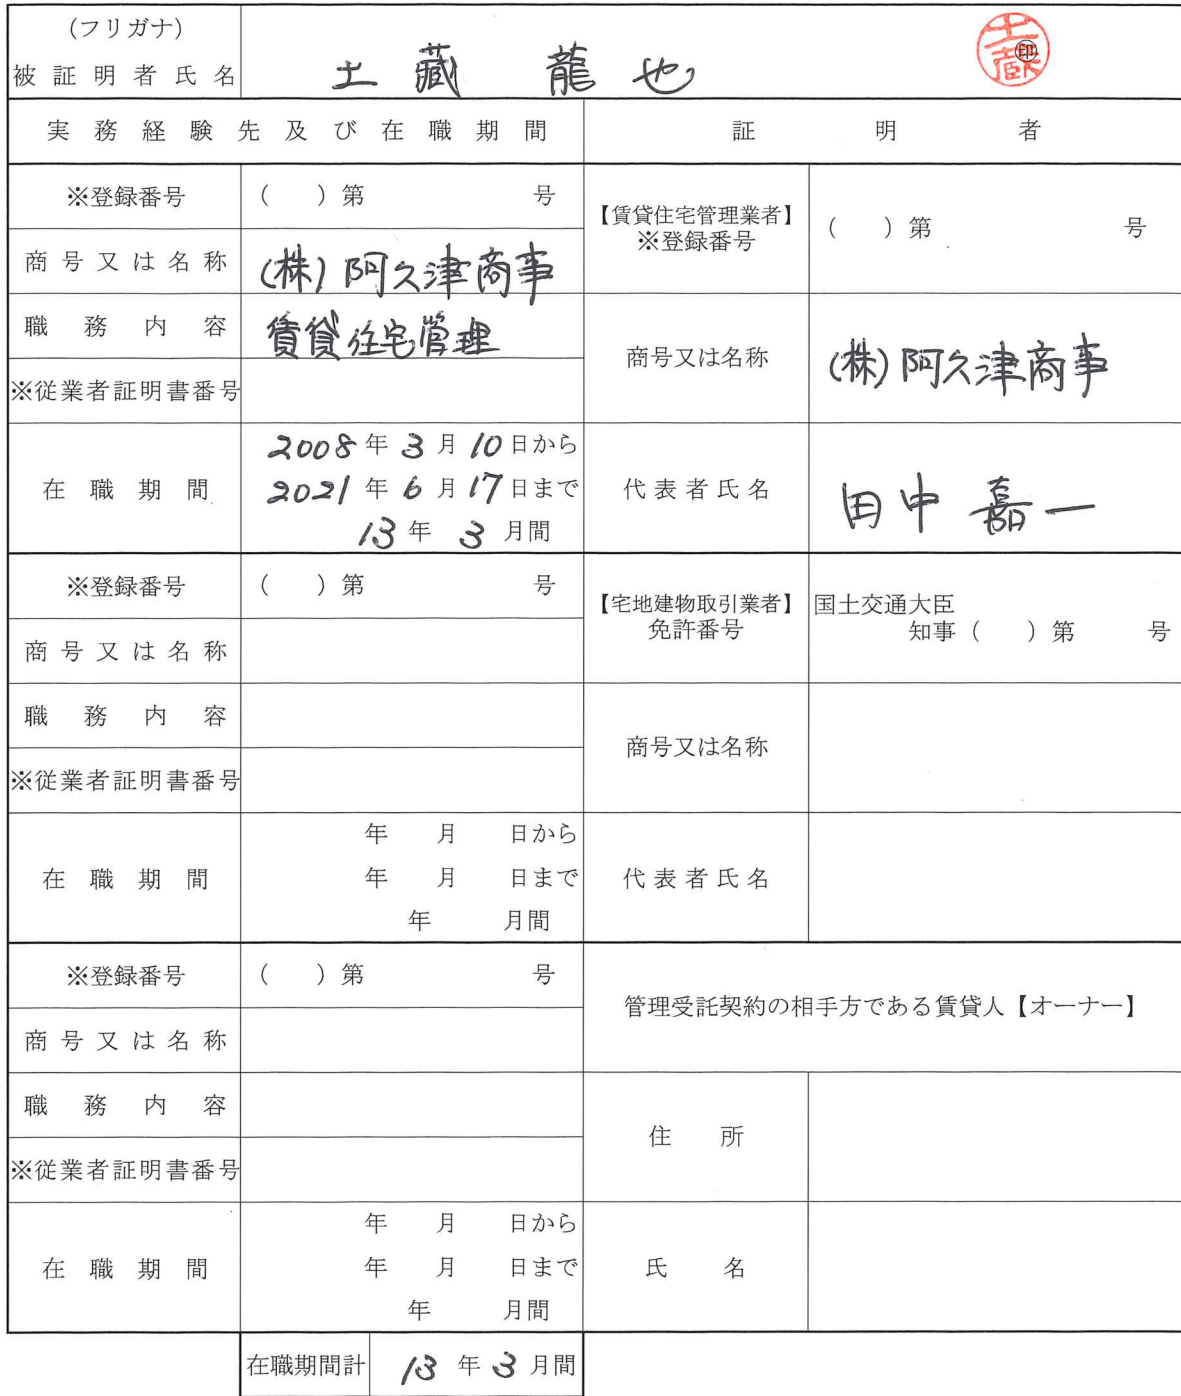 (フリガナ)
被証明者氏名 土藏 龍也 ㊞ 土蔵
実務経験先及び在職期間 証明者
※登録番号 ( )第 号 【賃貸住宅管理業者】 ※登録番号 ( )第 号
商号又は名称 (株)阿久津商事
職務内容 賃貸住宅管理 商号又は名称 (株)阿久津商事
※従業者証明書番号
在職期間 2008年3月10日から
2021年6月17日まで 代表者氏名 田中 嘉一
13年3月間
※登録番号 ( )第 号 【宅地建物取引業者】 免許番号 国土交通大臣
知事( )第 号
商号又は名称
職務内容 商号又は名称
※従業者証明書番号
在職期間 年 月 日から
年 月 日まで 代表者氏名
年 月間
※登録番号 ( )第 号 管理受託契約の相手方である賃貸人【オーナー】
商号又は名称
職務内容 住所
※従業者証明書番号
在職期間 年 月 日から
年 月 日まで 氏名
年 月間
在職期間計 13年3月間